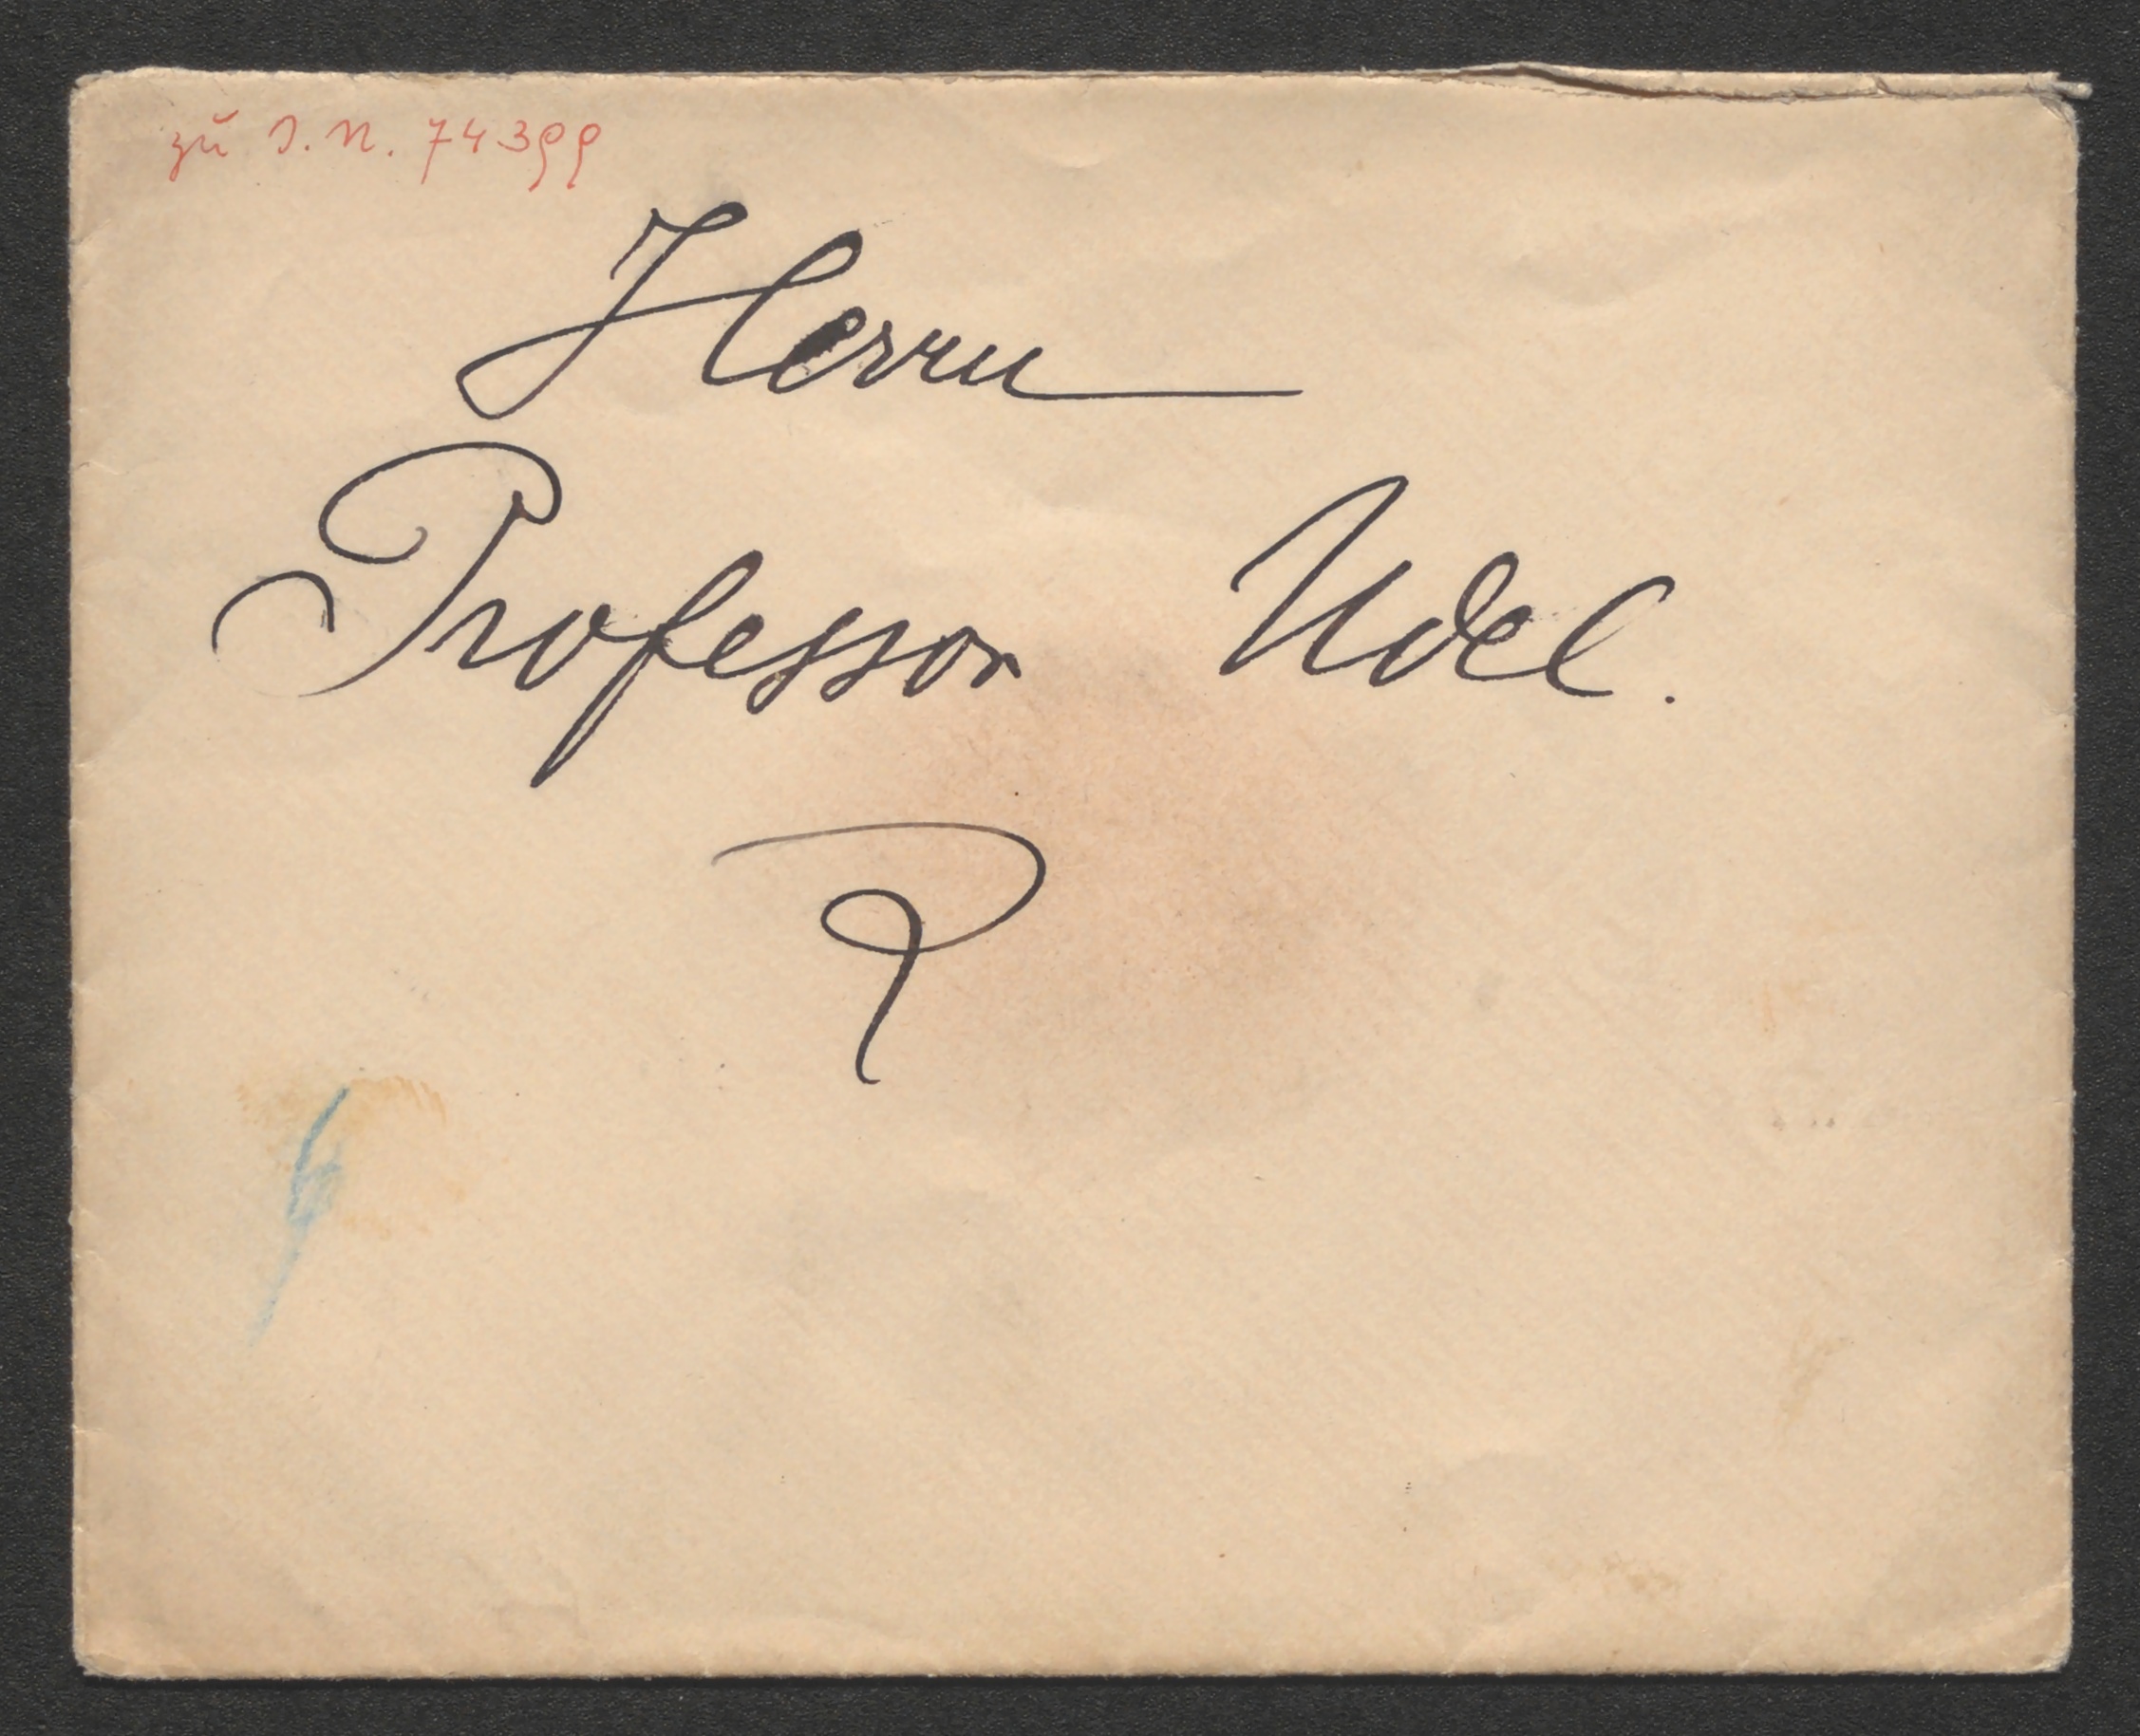 zu I. N. 74399
Herrn
Professor Udel.